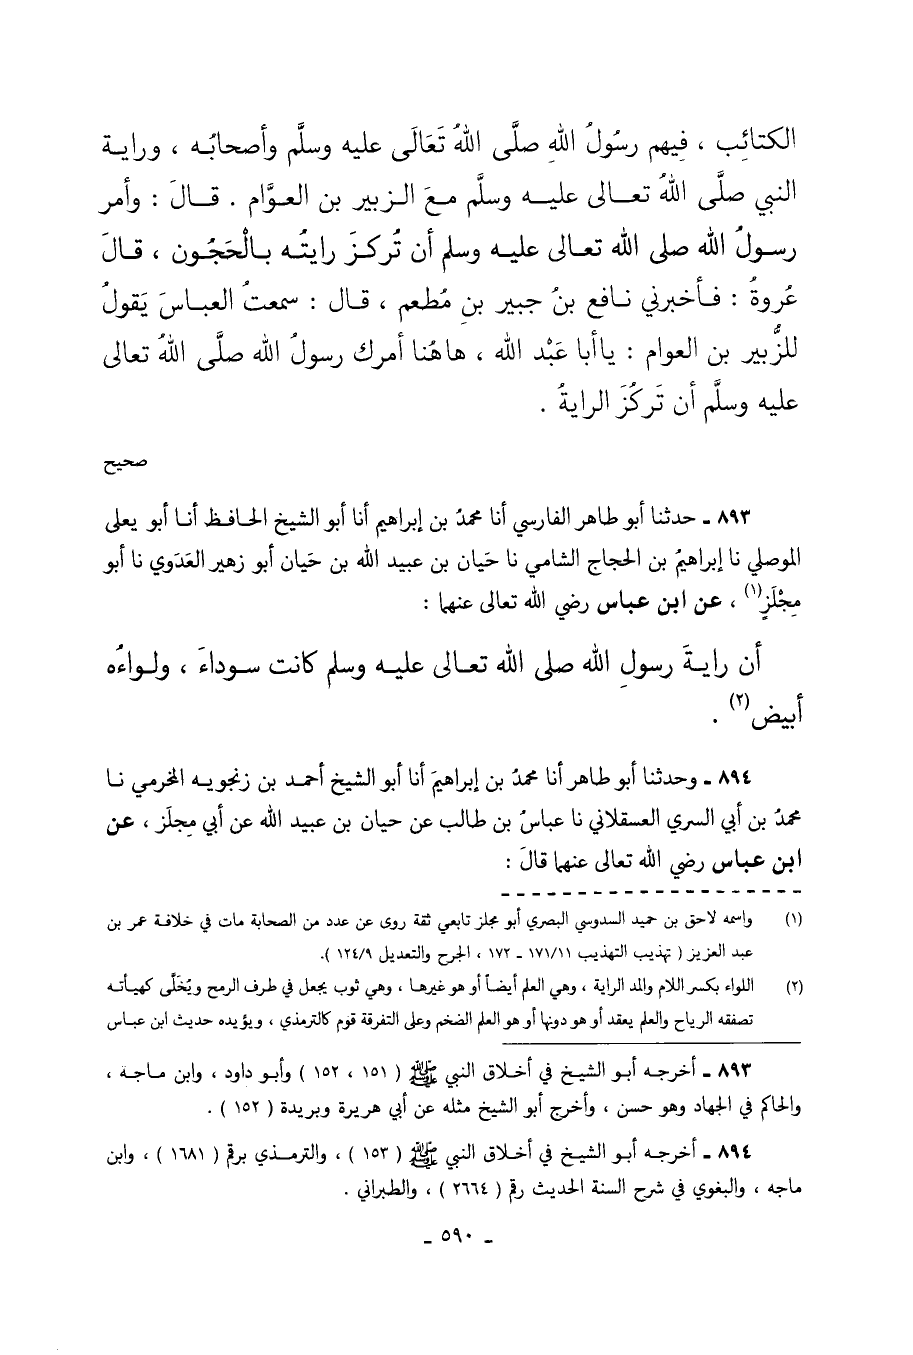 الكتائِب ، فيهم رسُولُ اللهِ صلَّى اللهُ تَعَالَى عليه وسلَّم وأصحابُه ، وراية
النبي صلَّى اللهُ تعالى عليه وسلَّم معَ الزبير بن العوَّام . قالَ : وأمر
رسولُ الله صلى الله تعالى عليه وسلم أن تُركزَ رايتُه بالْحَجُون ، قالَ
عُروةُ : فأخبرني نافع بنُ جبير بنِ مُطعم ، قال : سمعتُ العباسَ يَقولُ
للزُّبير بن العوام : ياأبا عَبْد الله ، هاهُنا أمرك رسولُ الله صلَّى اللهُ تعالى
عليه وسلَّم أن تَركُزَ الرايةُ .
صحيح
٨٩٣ ـ حدثنا أبو طاهر الفارسي أنا محمدُ بن إبراهيم أنا أبو الشيخ الحافظ أنا أبو يعلى
الموصلي نا إبراهيمُ بن الحجاج الشامي نا حَيان بن عبيد الله بن حَيان أبو زهير العَدَوي نا أبو
مِجْلَزٍ(١) ، عن ابن عباس رضي الله تعالى عنهما :
أن رايةَ رسولِ الله صلى الله تعالى عليه وسلم كانت سوداءَ ، ولواءُه
أبيض(٢) .
٨٩٤ ـ وحدثنا أبو طاهر أنا محمدُ بن إبراهيمَ أنا أبو الشيخ أحمد بن زنجويه المخرمي نا
محمدُ بن أبي السري العسقلاني نا عباسُ بن طالب عن حيان بن عبيد الله عن أبي مجلَز ، عن
ابن عباس رضي الله تعالى عنهما قالَ :
(١) واسمه لاحق بن حميد السدوسي البصري أبو مجلز تابعي ثقة روى عن عدد من الصحابة مات في خلافة عمر بن
عبد العزيز ( تهذيب التهذيب ١٧١/١١ ـ ١٧٢ ، الجرح والتعديل ١٢٤/٩ ).
(٢) اللواء بكسر اللام والمد الراية ، وهي العلم أيضاً أو هو غيرها ، وهي ثوب يجعل في طرف الرمح ويُخَلَّى كهيأته
تصفقه الرياح والعلم يعقد أو هو دونها أو هو العلم الضخم وعلى التفرقة قوم كالترمذي ، ويؤيده حديث ابن عباس
٨٩٣ ـ أخرجه أبو الشيخ في أخلاق النبي ﷺ ( ١٥١ ، ١٥٢ ) وأبو داود ، وابن ماجة ،
والحاكم في الجهاد وهو حسن ، وأخرج أبو الشيخ مثله عن أبي هريرة وبريدة ( ١٥٢ ) .
٨٩٤ ـ أخرجه أبو الشيخ في أخلاق النبي ﷺ ( ١٥٣ ) ، والترمذي برقم ( ١٦٨١ ) ، وابن
ماجه ، والبغوي في شرح السنة الحديث رقم ( ٢٦٦٤ ) ، والطبراني .
ـ ٥٩٠ ـ